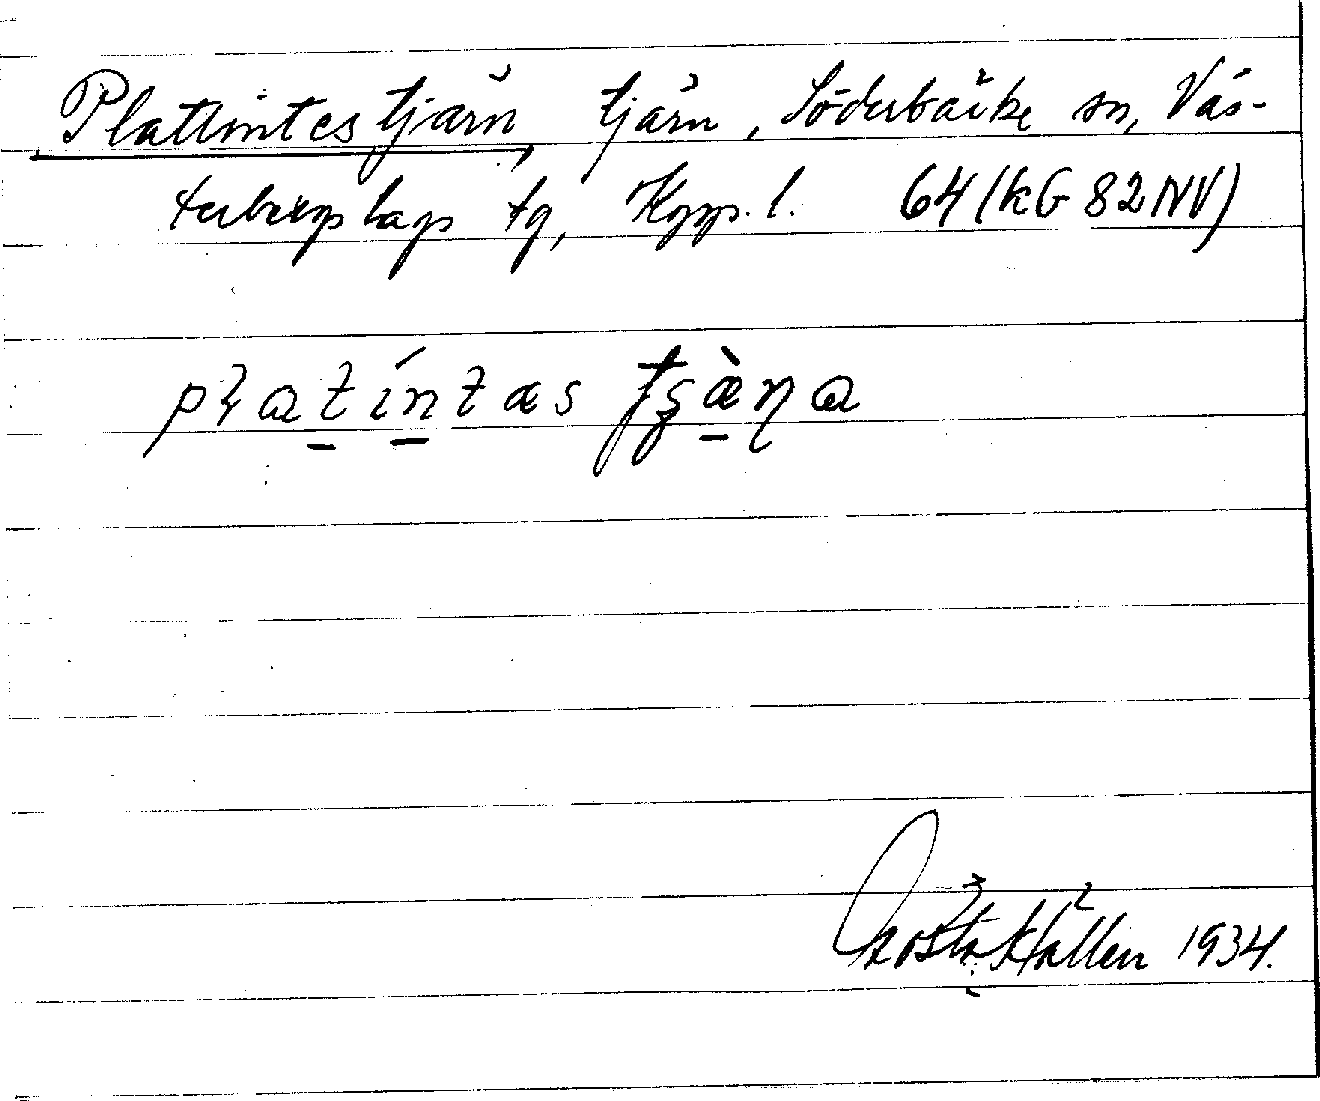 Plattintestjärn, tjärn, Söderbärke sn, Väs-
terbergslags tg, Kopp. l. 64 (KG 82 NV)
Gösta Hållen 1934.